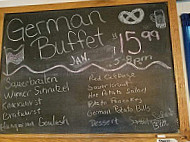 German
Buffet
$15.99
JAN.
5-8pm
Sauerbraten
Wiener Schnitzel
Knackwurst
Bratwurst
Hungarian Goulash
Red Cabbage
Sauer Kraut
Hot Potato Salad
Potato Pancakes
German Potato Balls
Dessert